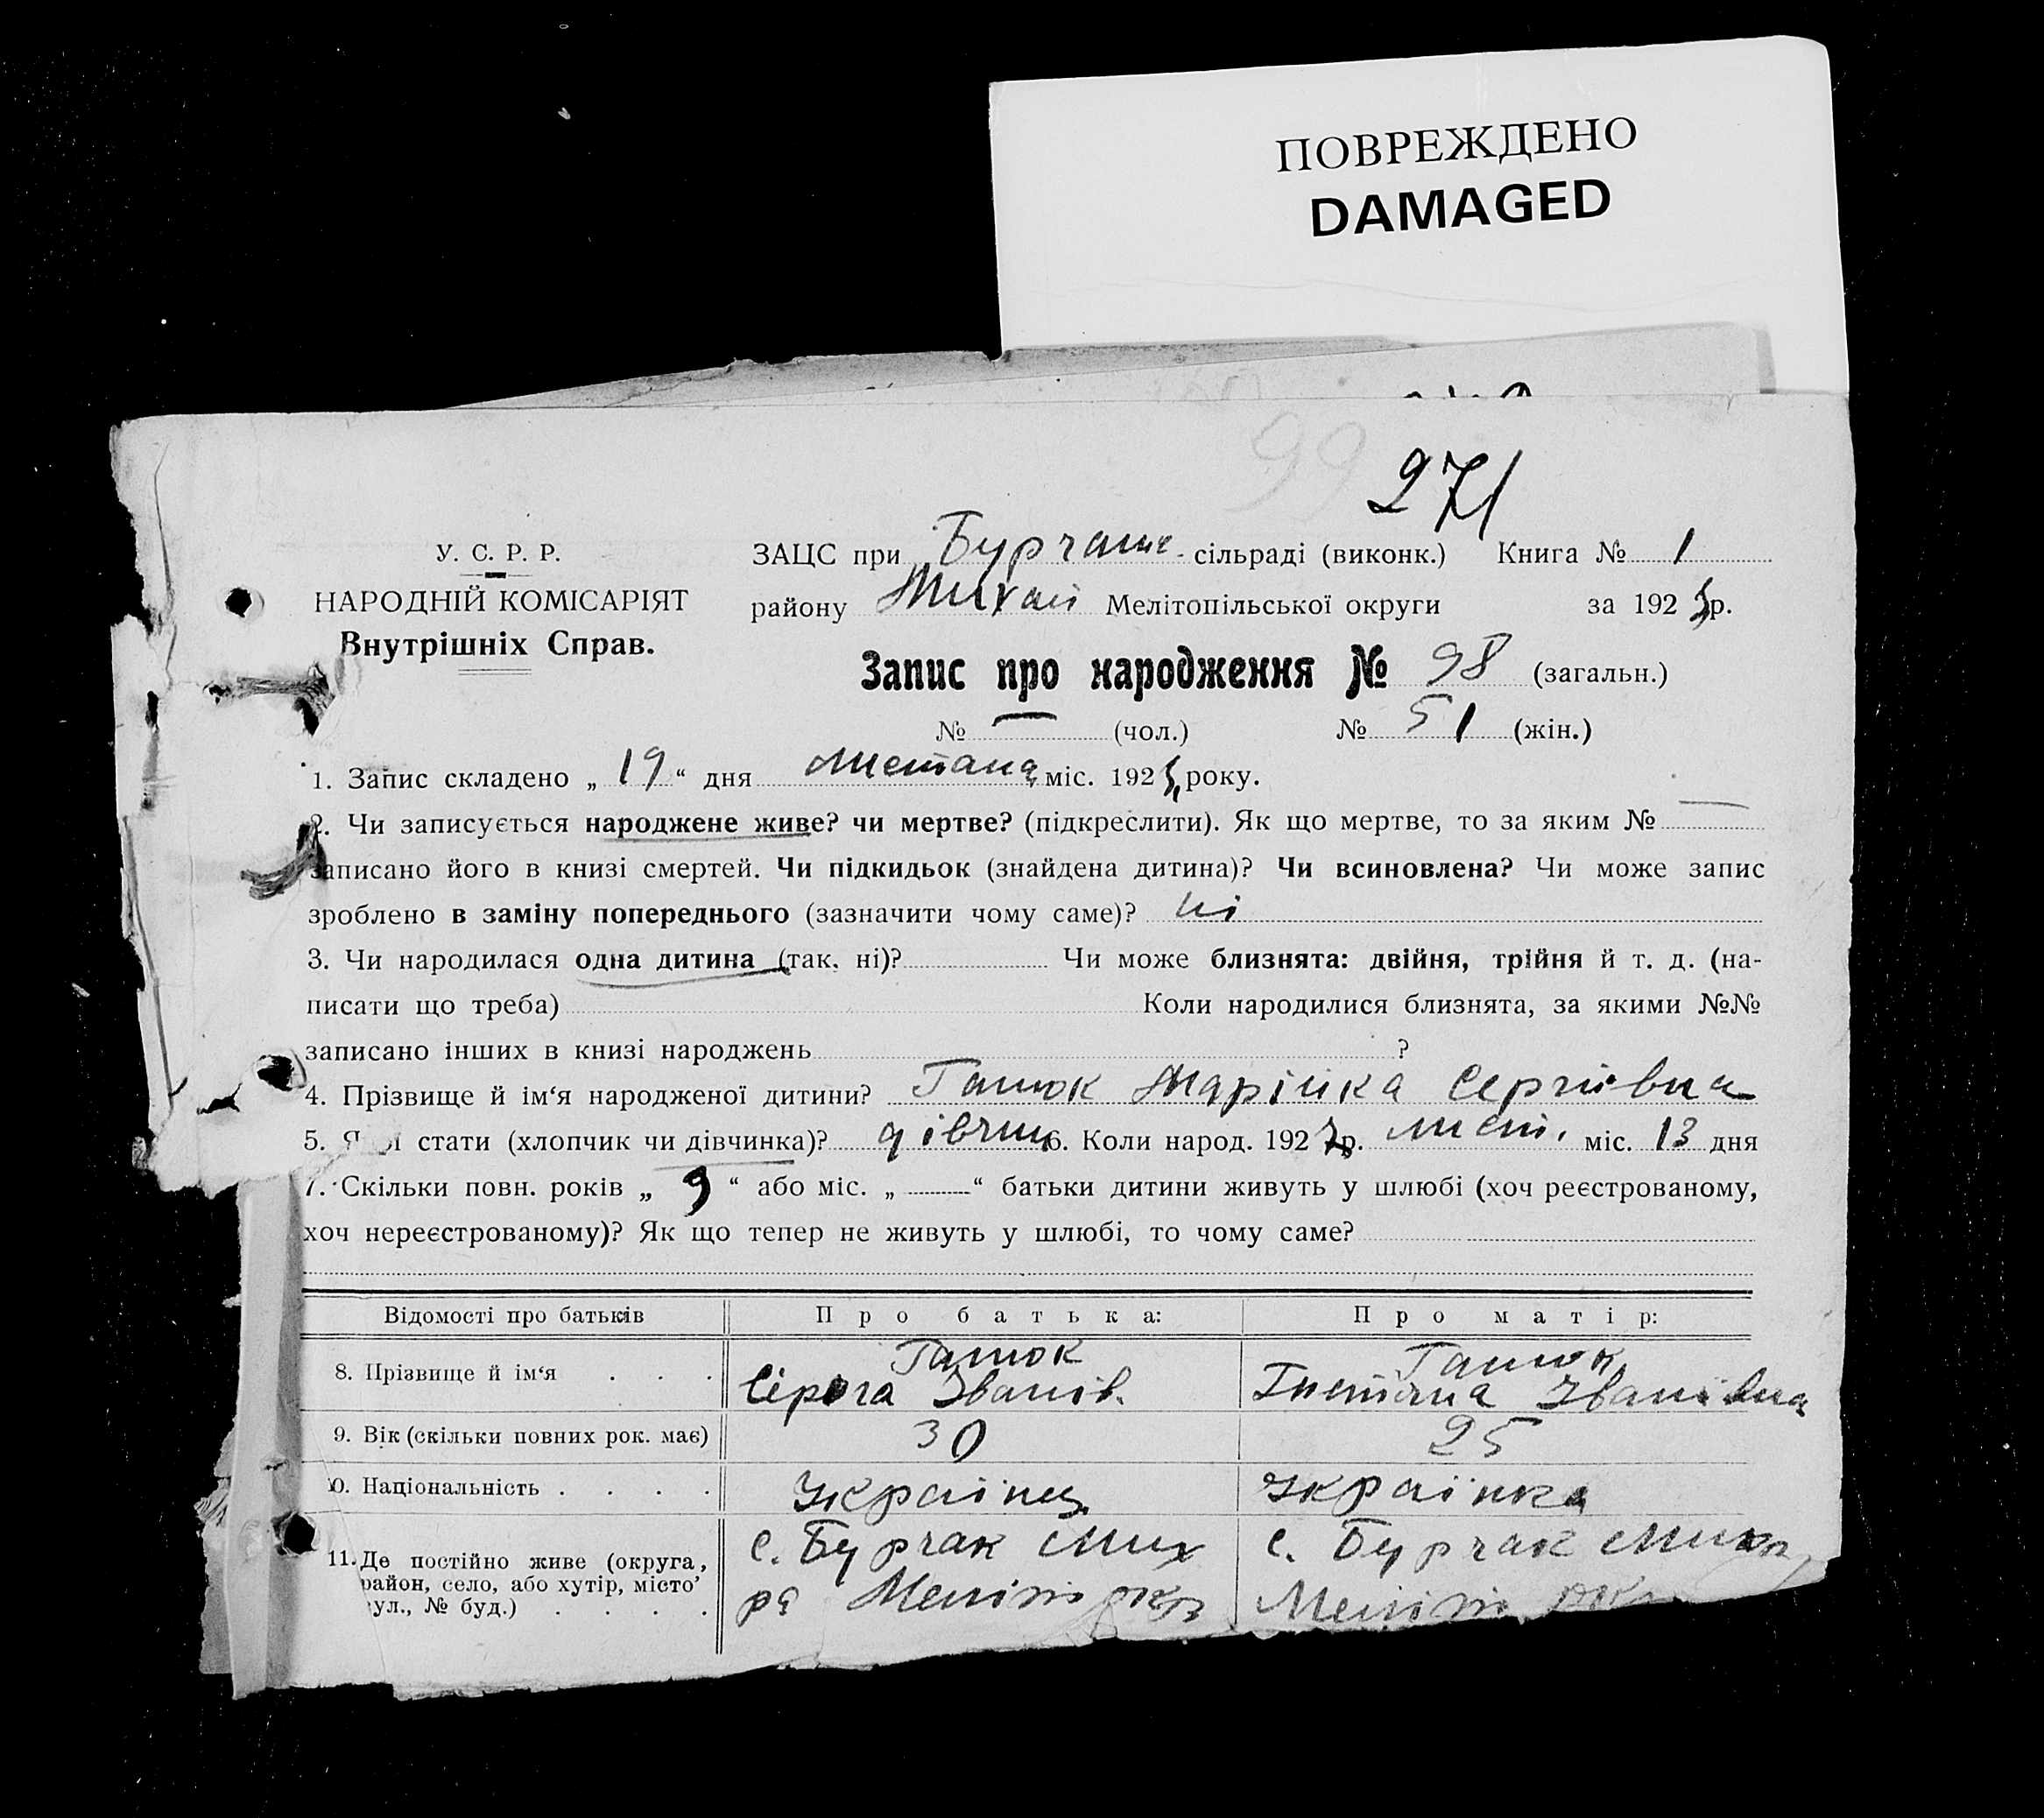 ПОВРЕЖДЕНО
DAMAGED
99
271
У. С. Р. Р.
НАРОДНІЙ КОМІСАРІЯТ
Внутрішніх Справ.
ЗАЦС при Бурчаце- сільраді (виконк.) Книга № 1
району Михай Мелітопільської округи за 192 р.
Запис про народження № 98 (загальн.)
№ — (чол.) № 51 (жін.)
1. Запис складено „ 19 “ дня міс. 192 року.
2. Чи записується народжене живе? чи мертве? (підкреслити). Як що мертве, то за яким № —
записано його в книзі смертей. Чи підкидьок (знайдена дитина)? Чи всиновлена? Чи може запис
зроблено в заміну попереднього (зазначити чому саме)? ні
3. Чи народилася одна дитина (так, ні)? Чи може близнята: двійня, трійня й т. д. (на-
писати що треба) Коли народилися близнята, за якими №№
записано інших в книзі народжень ?
4. Прізвище й ім‘я народженої дитини? Марійка Сергіівна
5. стати (хлопчик чи дівчинка)? дівчин 6. Коли народ. 192 р. лист. міс. 13 дня
7. Скільки повн. років „ 9 “ або міс. „ — “ батьки дитини живуть у шлюбі (хоч реєстрованому,
хоч нереєстрованому)? Як що тепер не живуть у шлюбі, то чому саме?
Відомості про батьків Про батька: Про матір:
8. Прізвище й ім‘я . . . Сірога Іванів. Іванівна
9. Вік (скільки повних рок. має) 30 25
10. Національність . . . . Українец Українка
11. Де постійно живе (округа, район, село, або хутір, місто’ вул., № буд.) . . . .
с. Бурчак Мих с. Бурчак
ра Меліто окр Меліто окр